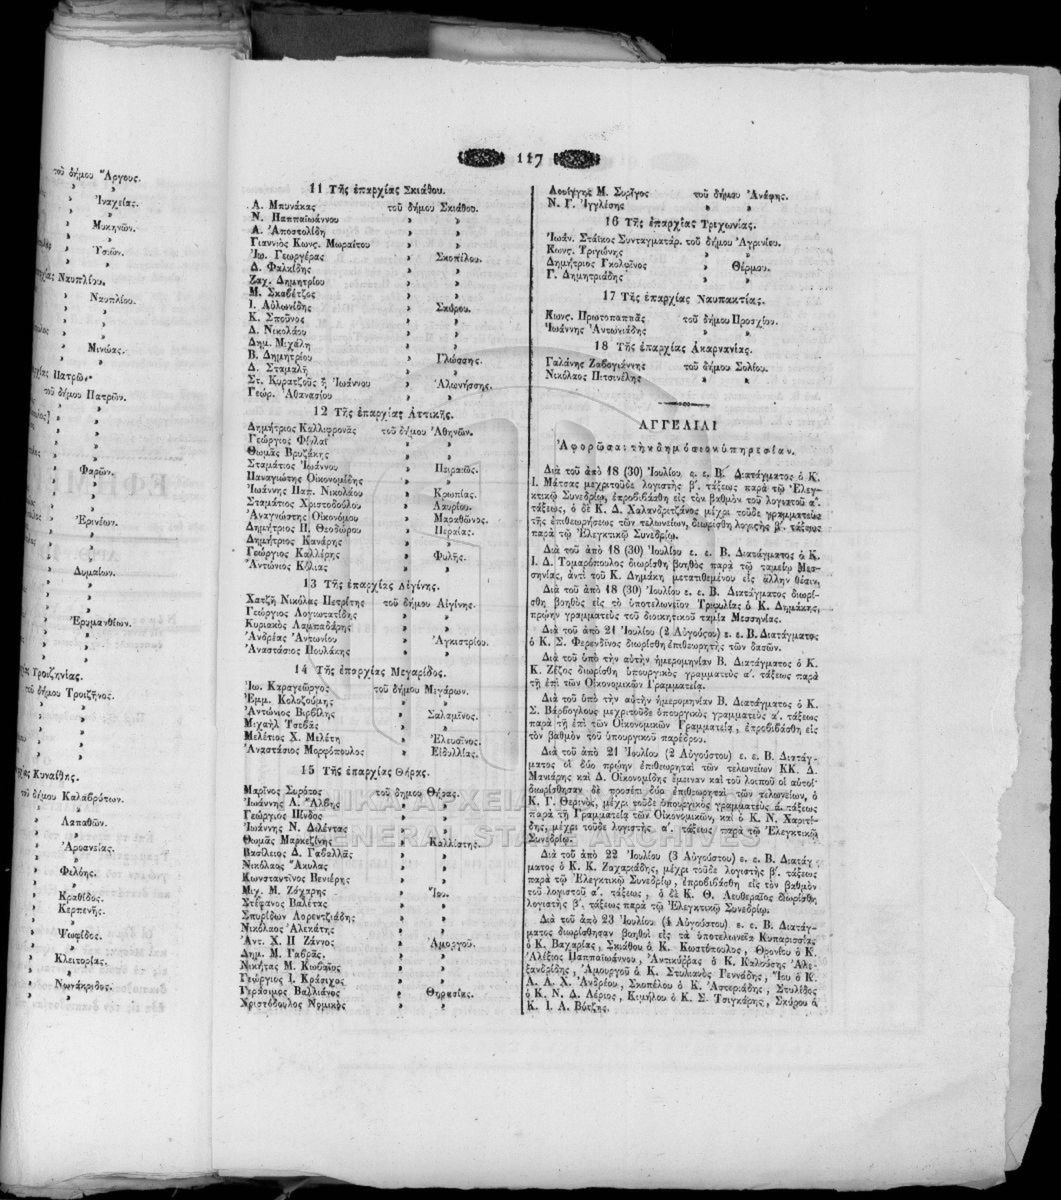 τοῦ δήμου Ἄργους.
Ἰναχείας.
Μυκηνῶν.
Ὑσιῶν.
Ναυπλίου.
Ναυπλίου.
Μινώας.
Πατρῶν
τοῦ δήμου Πατρῶν.
Φαρῶν.
Ἐρινέων.
Δυμαίων.
Ἐρυμανθίων.
Τροιζηνίας.
τοῦ δήμου Τροιζῆνος.
Κυναίθης.
τοῦ δήμου Καλαβρύτων.
Λαπαθῶν.
Ἀροανείας.
Φελόης.
Κραθίδος.
Κερπενῆς.
Ψωφίδος.
Κλειτορίας.
Νωνάκριδος.
117
11 Τῆς ἐπαρχίας Σκιάθου.
Α. Μπυνάκας τοῦ δήμου Σκιάθου.
Ν. Παππαϊωάννου » »
Α. Ἀποστολίδη » »
Γιαννιὸς Κωνς. Μωραΐτου » »
Ἰω. Γεωργέρας » Σκοπέλου.
Δ. Φαλκίδης » »
Ζαχ. Δημητρίου » »
Μ. Σκαβέτζος » »
Ι. Αὐλωνίδης » Σκύρου.
Κ. Σπούνος » »
Δ. Νικολάου » »
Δημ. Μιχάλη » »
Β. Δημητρίου » Γλώσσης.
Δ. Σταμαλῆ » »
Στ. Κυρατζοῦς ἢ Ἰωάννου » Ἁλωνήσσης.
Γεώρ. Ἀθανασίου » »
12 Τῆς ἐπαρχίας Ἀττικῆς.
Δημήτριος Καλλιφρονᾶς τοῦ δήμου Ἀθηνῶν.
Γεώργιος Φίνλαϊ » »
Θωμᾶς Βρυζάκης » »
Σταμάτιος Ἰωάννου » Πειραιῶς.
Παναγιώτης Οἰκονομίδης » »
Ἰωάννης Παπ. Νικολάου » Κρωπίας.
Σταμάτιος Χριστοδούλου » Λαυρίου.
Ἀναγνώστης Οἰκονόμου » Μαραθῶνος.
Δημήτριος Π. Θεοδώρου » Περαίας.
Δημήτριος Κανάρης » »
Γεώργιος Καλλέρης » Φυλῆς.
Ἀντώνιος Κόλιας » »
13 Τῆς ἐπαρχίας Αἰγίνης.
Χατζῆ Νικόλας Πετρίτης τοῦ δήμου Αἰγίνης.
Γεώργιος Λογιωτατίδης » »
Κυριακὸς Λαμπαδάρης » »
Ἀνδρέας Ἀντωνίου » Ἀγκιστρίου.
Ἀναστάσιος Πουλάκης » »
14 Τῆς ἐπαρχίας Μεγαρίδος.
Ἰω. Καραγεώργος τοῦ δήμου Μεγάρων.
Ἐμμ. Κολοζούμης » »
Ἀντώνιος Βιρβίλης » Σαλαμῖνος.
Μιχαὴλ Τσεβᾶς » »
Μελέτιος Χ. Μελέτη » Ἐλευσῖνος.
Ἀναστάσιος Μορφόπουλος » Εἰδυλλίας.
15 Τῆς ἐπαρχίας Θήρας.
Μαρῖνος Συρότος τοῦ δήμου Θήρας.
Ἰωάννης Λ. Ἄλβης » »
Γεώργιος Πίνδος » »
Ἰωάννης Ν. Δελέντας » »
Θωμᾶς Μαρκεζίνης » Καλλίστης.
Βασίλειος Δ. Γαβαλλᾶς » »
Νικόλαος Ἄκυλας » »
Κωνσταντῖνος Βενιέρης » »
Μιχ. Μ. Ζάχαρης » Ἴου.
Στέφανος Βαλέτας » »
Σπυρίδων Λορεντζιάδης » »
Νικόλαος Ἀλεκάτης » »
Ἀντ. Χ. Π Ζάννος » Ἀμοργοῦ.
Δημ. Μ. Γαβρᾶς. » »
Νικήτας Μ. Κωβαῖος » »
Γεώργιος Ι. Κράσιχος » »
Γεράσιμος Βαλλιάνος » Θηρασίας.
Χριστόδουλος Νομικὸς » »
Λουίγγης Μ. Συρῖγος τοῦ δήμου Ἀνάφης.
Ν. Γ. Ἰγγλέσης » »
16 Τῆς ἐπαρχίας Τριχωνίας.
Ἰωάν. Στάϊκος Συνταγματάρ. τοῦ δήμου Ἀγρινίου.
Κωνς. Τριγώνης » »
Δημήτριος Γκολφῖνος » Θέρμου.
Γ. Δημητριάδης » »
17 Τῆς ἐπαρχίας Ναυπακτίας.
Κωνς. Πρωτοπαππᾶς τοῦ δήμου Προσχίου.
Ἰωάννης Ἀντωνιάδης » »
18 Τῆς ἐπαρχίας Ἀκαρνανίας.
Γαλάνης Ζαβογιάννης τοῦ δήμου Σολίου.
Νικόλαος Πιτσινέλης » »
ΑΓΓΕΛΙΑΙ
Ἀφορῶσαι τὴν δημόσιον ὑπηρεσίαν.
Διὰ τοῦ ἀπὸ 18 (30) Ἰουλίου ε. ε. Β. Διατάγματος ὁ Κ.
Ι. Μέτσας μεχριτοῦδε λογιστὴς β'. τάξεως παρὰ τῷ Ἐλεγ-
κτικῷ Συνεδρίῳ, ἐπροβιβάσθη εἰς τὸν βαθμὸν τοῦ λογιστοῦ α'.
τάξεως, ὁ δὲ Κ. Δ. Χαλανδριτζάνος μέχρι τοῦδε γραμματεὺς
τῆς ἐπιθεωρήσεως τῶν τελωνείων, διωρίσθη λογιστὴς β'. τάξεως
παρὰ τῷ Ἐλεγκτικῷ Συνεδρίῳ.
Διὰ τοῦ ἀπὸ 18 (30) Ἰουλίου ε. ε. Β. Διατάγματος ὁ Κ.
Ι. Δ. Τομαρόπουλος διωρίσθη βοηθὸς παρὰ τῷ ταμείῳ Μεσ-
σηνίας, ἀντὶ τοῦ Κ. Δημάκη μετατιθεμένου εἰς ἄλλην θέσιν.
Διὰ τοῦ ἀπὸ 18 (30) Ἰουλίου ε. ε. Β. Διατάγματος διωρί-
σθη βοηθὸς εἰς τὸ ὑποτελωνεῖον Τριφυλίας ὁ Κ. Δημάκης,
πρώην γραμματεὺς τοῦ διοικητικοῦ ταμία Μεσσηνίας.
Διὰ τοῦ ἀπὸ 21 Ἰουλίου (2 Αὐγούσου) ε. ε. Β. Διατάγματος
ὁ Κ. Σ. Φερενδῖνος διωρίσθη ἐπιθεωρητὴς τῶν δασῶν.
Διὰ τοῦ ὑπὸ τὴν αὐτὴν ἡμερομηνίαν Β. Διατάγματος ὁ Κ.
Κ. Ζέζος διωρίσθη ὑπουργικὸς γραμματεὺς α'. τάξεως παρὰ
τῇ ἐπὶ τῶν Οἰκονομικῶν Γραμματείᾳ.
Διὰ τοῦ ὑπὸ τὴν αὐτὴν ἡμερομηνίαν Β. Διατάγματος ὁ Κ.
Σ. Βάρβογλους μεχριτοῦδε ὑπουργικὸς γραμματεὺς α'. τάξεως
παρὰ τῇ ἐπὶ τῶν Οἰκονομικῶν Γραμματείᾳ, ἐπροβιβάσθη εἰς
τὸν βαθμὸν τοῦ ὑπουργικοῦ παρέδρου.
Διὰ τοῦ ἀπὸ 21 Ἰουλίου (2 Αὐγούστου) ε. ε. Β. Διατάγ-
ματος οἱ δύο πρώην ἐπιθεωρηταὶ τῶν τελωνείων ΚΚ. Δ.
Μανιάρης καὶ Δ. Οἰκονομίδης ἔμειναν καὶ τοῦ λοιποῦ οἱ αὐτοί·
διωρίσθησαν δὲ προσέτι δύο ἐπιθεωρηταὶ τῶν τελωνείων, ὁ
Κ. Γ. Θερινὸς, μέχρι τοῦδε ὑπουργικὸς γραμματεὺς α. τάξεως
παρὰ τῇ Γραμματείᾳ τῶν Οἰκονομικῶν, καὶ ὁ Κ. Ν. Χαριτί-
δης, μέχρι τοῦδε λογιστὴς α'. τάξεως παρὰ τῷ Ἐλεγκτικῷ
Συνεδρίῳ.
Διὰ τοῦ ἀπὸ 22 Ἰουλίου (3 Αὐγούστου) ε. ε. Β. Διατάγ-
ματος ὁ Κ. Κ. Ζαχαριάδης, μέχρι τοῦδε λογιστὴς β'. τάξεως
παρὰ τῷ Ἐλεγκτικῷ Συνεδρίῳ, ἐπροβιβάσθη εἰς τὸν βαθμὸν
τοῦ λογιστοῦ α'. τάξεως, ὁ δὲ Κ. Θ. Λευθεραῖος διωρίσθη
λογιστὴς β'. τάξεως παρὰ τῷ Ἐλεγκτικῷ Συνεδρίῳ.
Διὰ τοῦ ἀπὸ 23 Ἰουλίου (4 Αὐγούστου) ε. ε. Β. Διατάγ-
ματος διωρίσθησαν βοηθοὶ εἰς τὰ ὑποτελωνεῖα Κυπαρισσίας
ὁ Κ. Βαχαρίας, Σκιάθου ὁ Κ. Κωστόπουλος, Θρονίου ὁ Κ.
Ἀλέξιος Παππαϊωάννου, Ἀντικύρρας ὁ Κ. Καλούσης Ἀλε-
ξανδρίδης, Ἀμοργοῦ ὁ Κ. Στυλιανὸς Γεννάδης, Ἴου ὁ Κ.
Α. Α. Χ. Ἀνδρέου, Σκοπέλου ὁ Κ. Ἀστεριάδης, Στυλίδος
ὁ Κ. Ν. Δ. Λέριος, Κιμήλου ὁ Κ. Σ. Τσιγκάρης, Σκύρου ὁ
Κ. Ι. Α. Βύτζης.
GENERAL STATE ARCHIVES